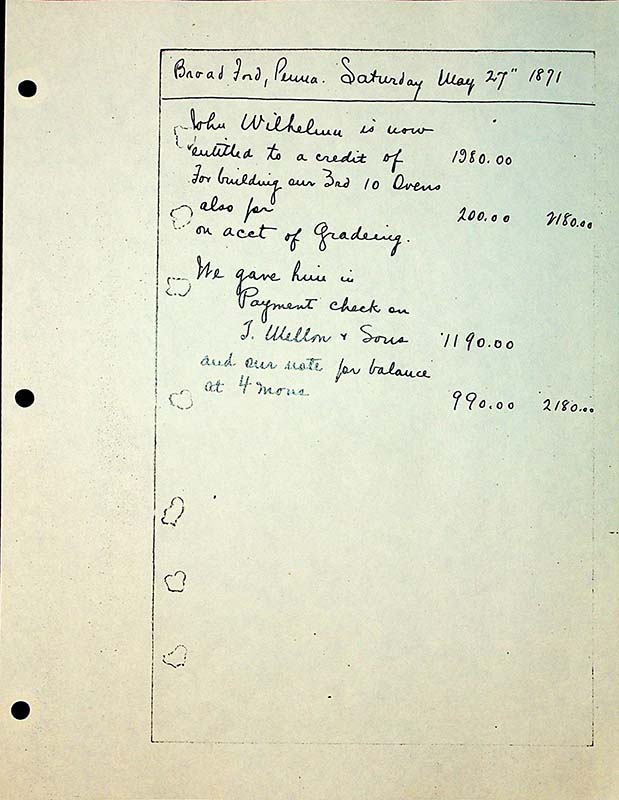 Broad Ford, Penna. Saturday May 27" 1871
John Wilhelm is now
entitled to a credit of 1980.00
For building our 3rd 10 Ovens
also for 200.00 2180.00
on acct of Gradeing.
We gave him in
Payment check on
T. Mellon & Sons 1190.00
and our note for balance
at 4 mons 990.00 2180.00